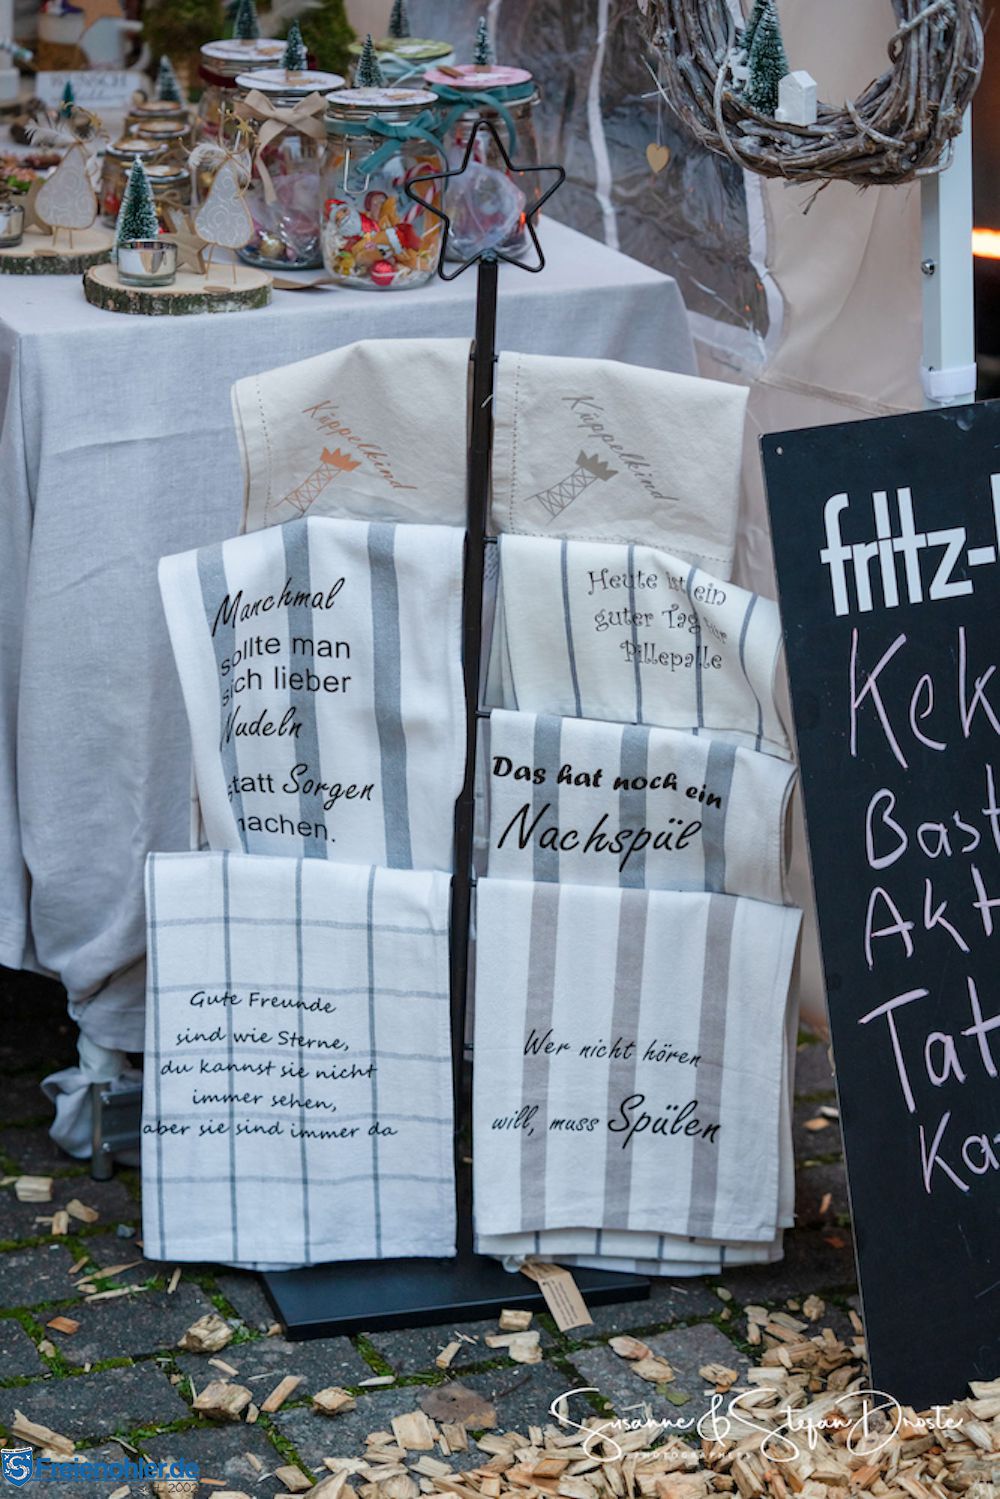 WUNSCH
Küppelkind
Küppelkind
Manchmal
sollte man
sich lieber
Nudeln
statt Sorgen
machen.
Heute ist ein
guter Tag für
Pillepalle
Das hat noch ein
Nachspül
Gute Freunde
sind wie Sterne,
du kannst sie nicht
immer sehen,
aber sie sind immer da
Wer nicht hören
will, muss Spülen
fritz-
Kek
Bast
Akt
Tat
Ka
Susanne & Stefan Droste
PHOTOGRAPHY
Freienohler.de
SEIT 2002